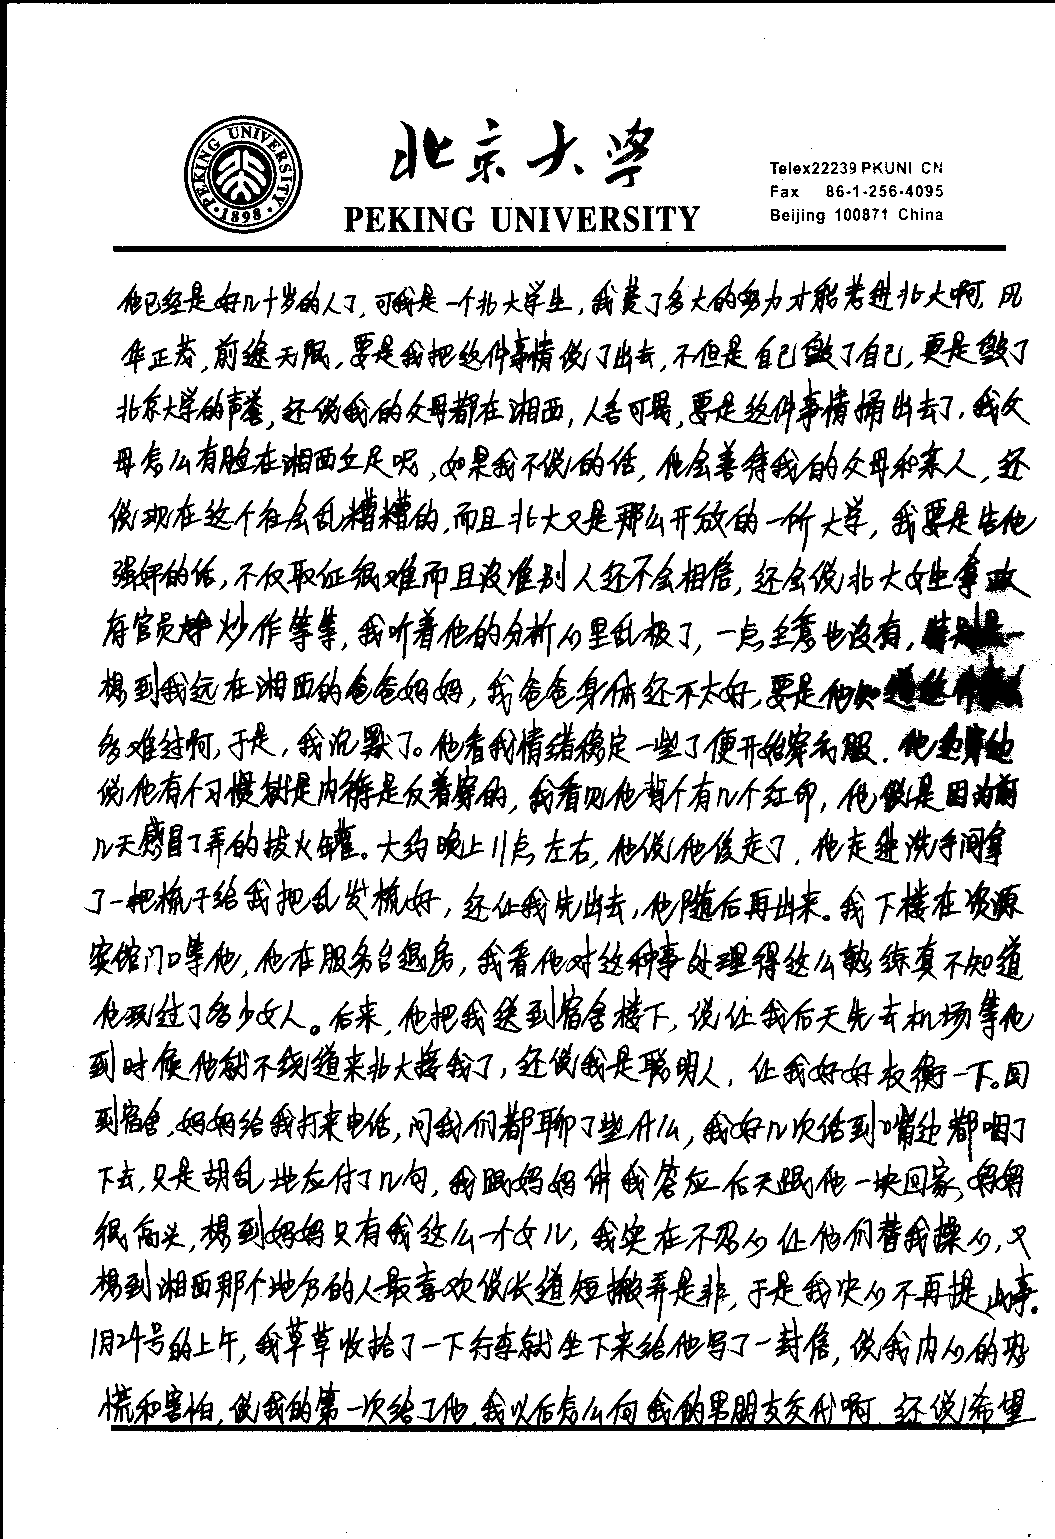 PEKING UNIVERSITY
·1898·
北京大学
PEKING UNIVERSITY
Telex22239 PKUNI CN
Fax 86-1-256-4095
Beijing 100871 China
他已经是好几十岁的人了,可我是一个北大学生,我费了多大的努力才能考进北大啊,风
华正茂,前途无限,要是我把这件事情说了出去,不但是自己毁了自己,更是毁了
北京大学的声誉,还说我的父母都在湘西,人言可畏,要是这件事情捅出去了,我父
母怎么有脸在湘西立足呢,如果我不说的话,他会善待我的父母和家人,还
说现在这个社会乱糟糟的,而且北大又是那么开放的一所大学,我要是告他
强奸的话,不仅取证很难而且没准别人还不会相信,还会说北大女生拿政
府官员炒作等等,我听着他的分析心里乱极了,一点主意也没有,
想到我远在湘西的爸爸妈妈,我爸爸身体还不太好,要是他知道这件
多难过啊,于是,我沉默了。他看我情绪稳定一些了便开始穿衣服,他
说他有个习惯就是内裤是反着穿的,我看见他背个有几个红印,他说是因为前
几天感冒了弄的拔火罐。大约晚上11点左右,他说他该走了,他走进洗手间拿
了一把梳子给我把乱发梳好,还让我先出去,他随后再出来。我下楼在资源
宾馆门口等他,他在服务台退房,我看他对这种事处理得这么熟练真不知道
他玩过了多少女人。后来,他把我送到宿舍楼下,说让我后天先去机场等他
到时候他就不绕道来北大接我了,还说我是聪明人,让我好好权衡一下。回
到宿舍,妈妈给我打来电话,问我们都聊了些什么,我好几次话到嘴边都咽了
下去,只是胡乱地应付了几句,我跟妈妈讲我答应后天跟他一块回家,妈妈
很高兴,想到妈妈只有我这么一个女儿,我实在不忍心让他们替我操心,又
想到湘西那个地方的人最喜欢说长道短搬弄是非,于是我决心不再提此事。
1月24号的上午,我草草收拾了一下行李就坐下来给他写了一封信,说我内心的恐
慌和害怕,说我的第一次给了他,我以后怎么向我的男朋友交代啊,还说希望